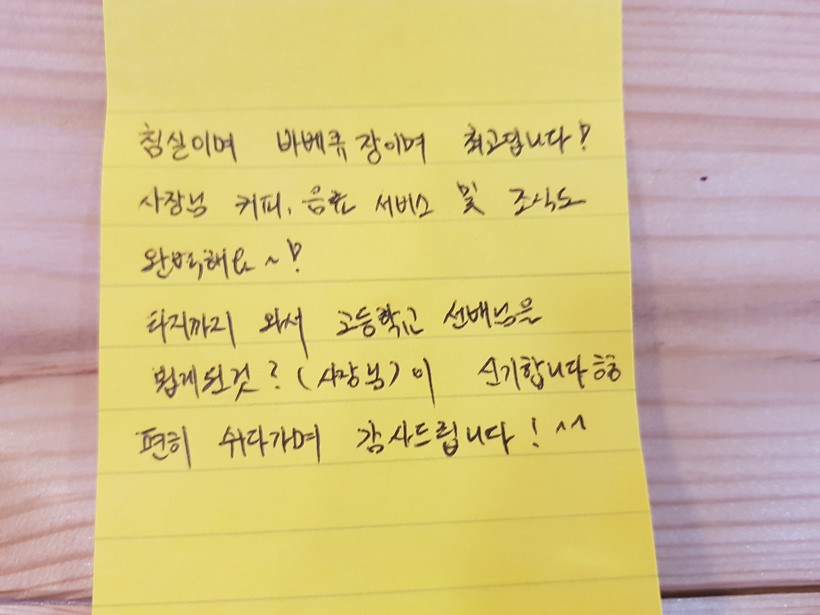 침실이며 바베큐장이며 최고입니다!
사장님 커피, 음료 서비스 및 조식도
완벽해요~!
타지까지 와서 고등학교 선배님을
뵙게된것? (사장님)이 신기합니다 ㅎㅎ
편히 쉬다가며 감사드립니다! ^^